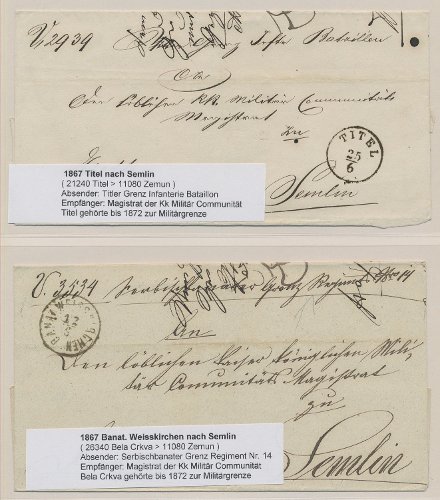 V. 2939
Bataillon
An
Den löblichen KK. Militär Communitäts
Magistrat
zu
TITEL
25
6
Semlin
1867 Titel nach Semlin
( 21240 Titel > 11080 Zemun )
Absender: Titler Grenz Infanterie Bataillon
Empfänger: Magistrat der Kk Militär Communität
Titel gehörte bis 1872 zur Militärgrenze
V. 3534 Serbischbanater Grenz Regiment No 14
BANAT. WEISSKIRCHEN
An
Den löblichen Kaiser Königlichen Mili-
tär Comunitäts Magistrat
zu
Semlin
1867 Banat. Weisskirchen nach Semlin
( 26340 Bela Crkva > 11080 Zemun )
Absender: Serbischbanater Grenz Regiment Nr. 14
Empfänger: Magistrat der Kk Militär Communität
Bela Crkva gehörte bis 1872 zur Militärgrenze